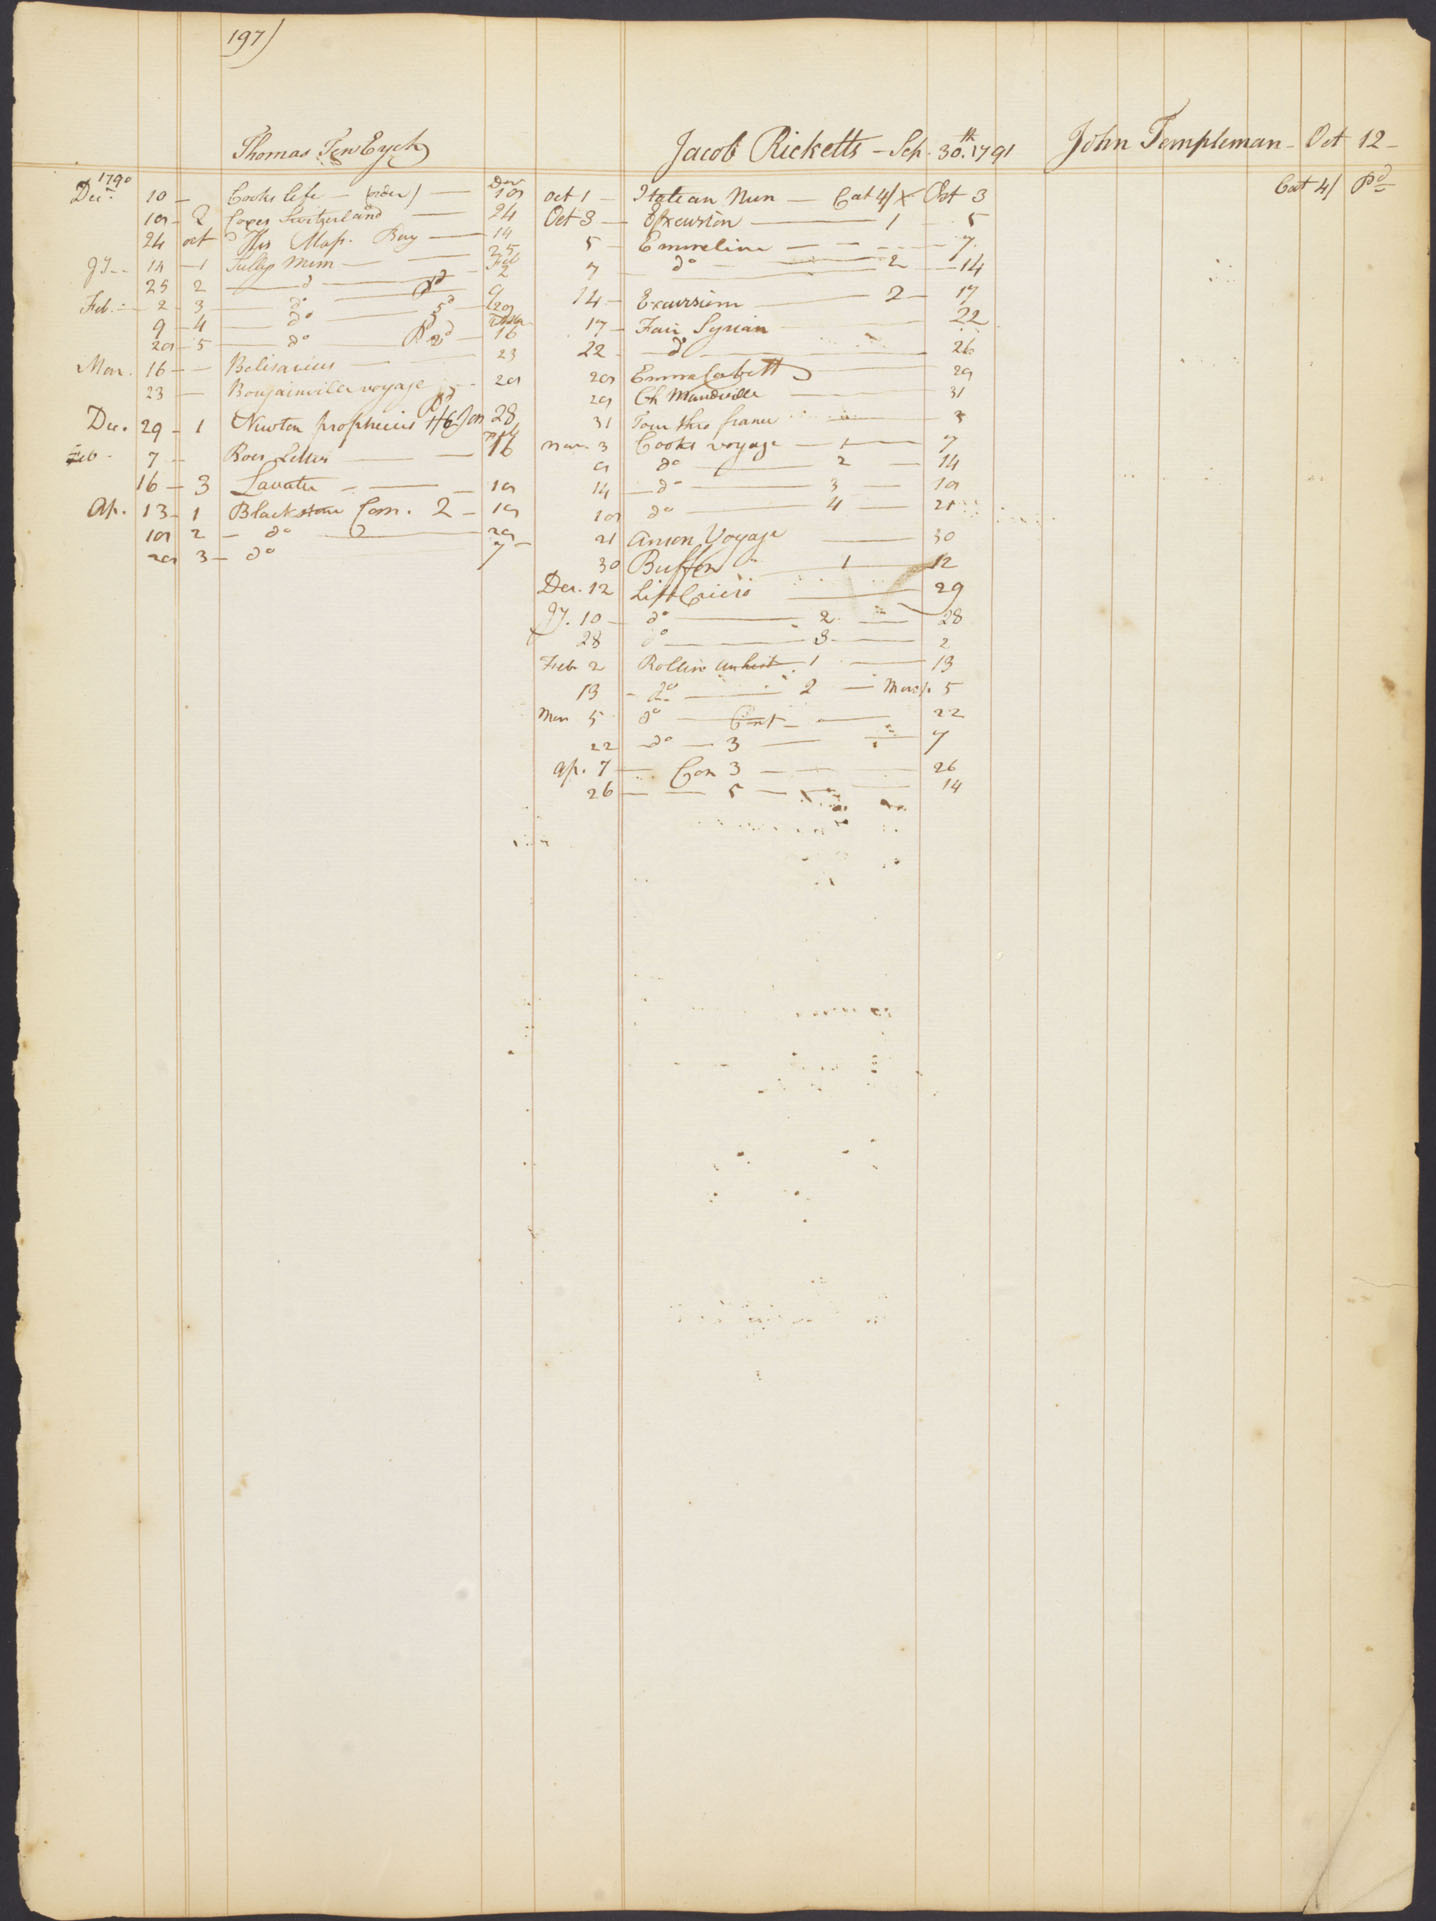 197/
Thomas TenEyck
1790
Decr. 10 — Cooks life — (oder) — Decr 19
19 — 2 Coxes Switzerland — 24
24 oct His Map. Bay — 14
Jy — 14 — 1 Sullys Mem — 25
25 2 — do — Pd Feb 2
Feb. — 2 — 3 — do — 9
9 — 4 — do — 5d
29 — 5 — do — Pd 2d 16
Mar. 16 — — Belisarius — 23
23 — Bougainville voyage — 29
Dec. 29 — 1 Newton prophecies 28
Feb 7 — Letters — 16
16 — 3 Lavater — 19
Ap. 13 — 1 Blackstone Com. 2 — 19
19 2 — do — 29
29 3 — do 7
Jacob Ricketts — Sep. 30.th 1791
oct 1 — Italean Nun — Cat 4/ X Oct 3
Oct 3 — Excursion — 1 5
5 — Emmeline — 7
7 do — 2 — 14
14 — Excursion — 2 — 17
17 — Fair Syrian 22
22 — do — 26
29 Emma Corbett — 29
29 Ch Mandeville — 31
31 Tour thro france 3
Nov. 3 Cooks voyage — 1 — 7
9 do — 2 — 14
14 — do — 3 — 19
19 do — 4 — 21
21 Anson Voyage — 30
30 Buffon 1 12
Dec. 12 Life Cicero — 29
Jy. 10 — do — 2 — 28
28 do — 3 — 2
Feb 2 Rollin an hist 1 — 13
13 — do — 2 — March 5
Mar 5 do — Cont — 22
22 — do — 3 — 7
Ap. 7 — Con 3 — 26
26 — — 5 — 14
John Templeman — Oct 12 —
Cat 4/ Pd